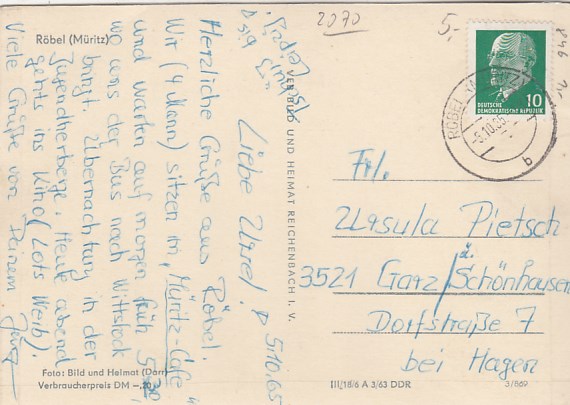 Röbel (Müritz)
Liebe Ursel! D 5.10.65
Herzliche Grüße aus Röbel.
Wir (4 Mann) sitzen im "Müritz-Cafe"
und warten auf morgen früh 5.30,
wo uns der Bus nach Wittstock
bringt. Übernachtung in der
Jugendherberge. Heute abend
gehts ins Kino (Lots Weib).
Viele Grüße von Deinem
Jürg
Foto: Bild und Heimat (Darr)
Verbraucherpreis DM –,20
VERLAG BILD UND HEIMAT REICHENBACH I. V.
III/18/6 A 3/63 DDR
3/869
2070
5,-
DEUTSCHE
DEMOKRATISCHE REPUBLIK
10
RÖBEL (MÜRITZ)
-6.10.65
b
Frl.
Ursula Pietsch
3521 Garz / ü. Schönhausen
Dorfstraße 7
bei Hagen